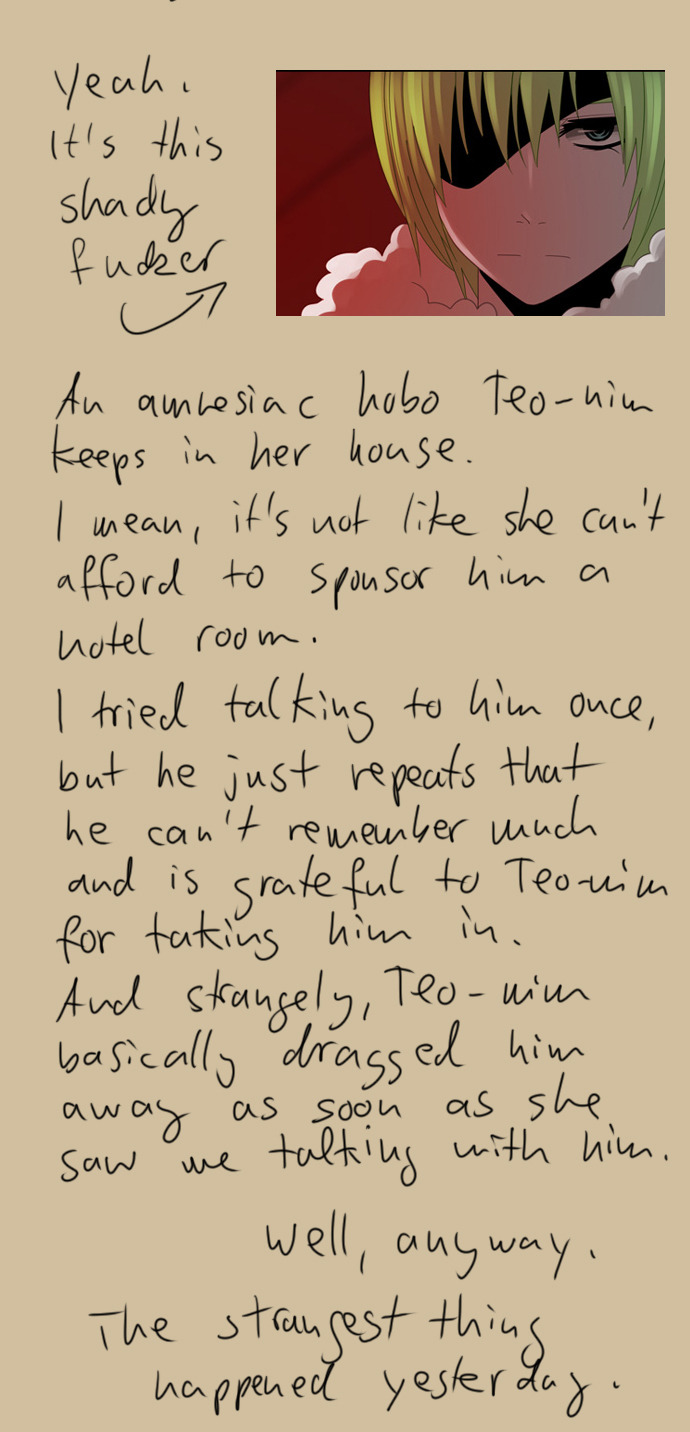 Yeah.
It's this
shady
fucker
An amnesiac hobo Teo-nim
keeps in her house.
I mean, it's not like she can't
afford to sponsor him a
hotel room.
I tried talking to him once,
but he just repeats that
he can't remember much
and is grateful to Teo-nim
for taking him in.
And strangely, Teo-nim
basically dragged him
away as soon as she
saw me talking with him.
Well, anyway.
The strangest thing
happened yesterday.